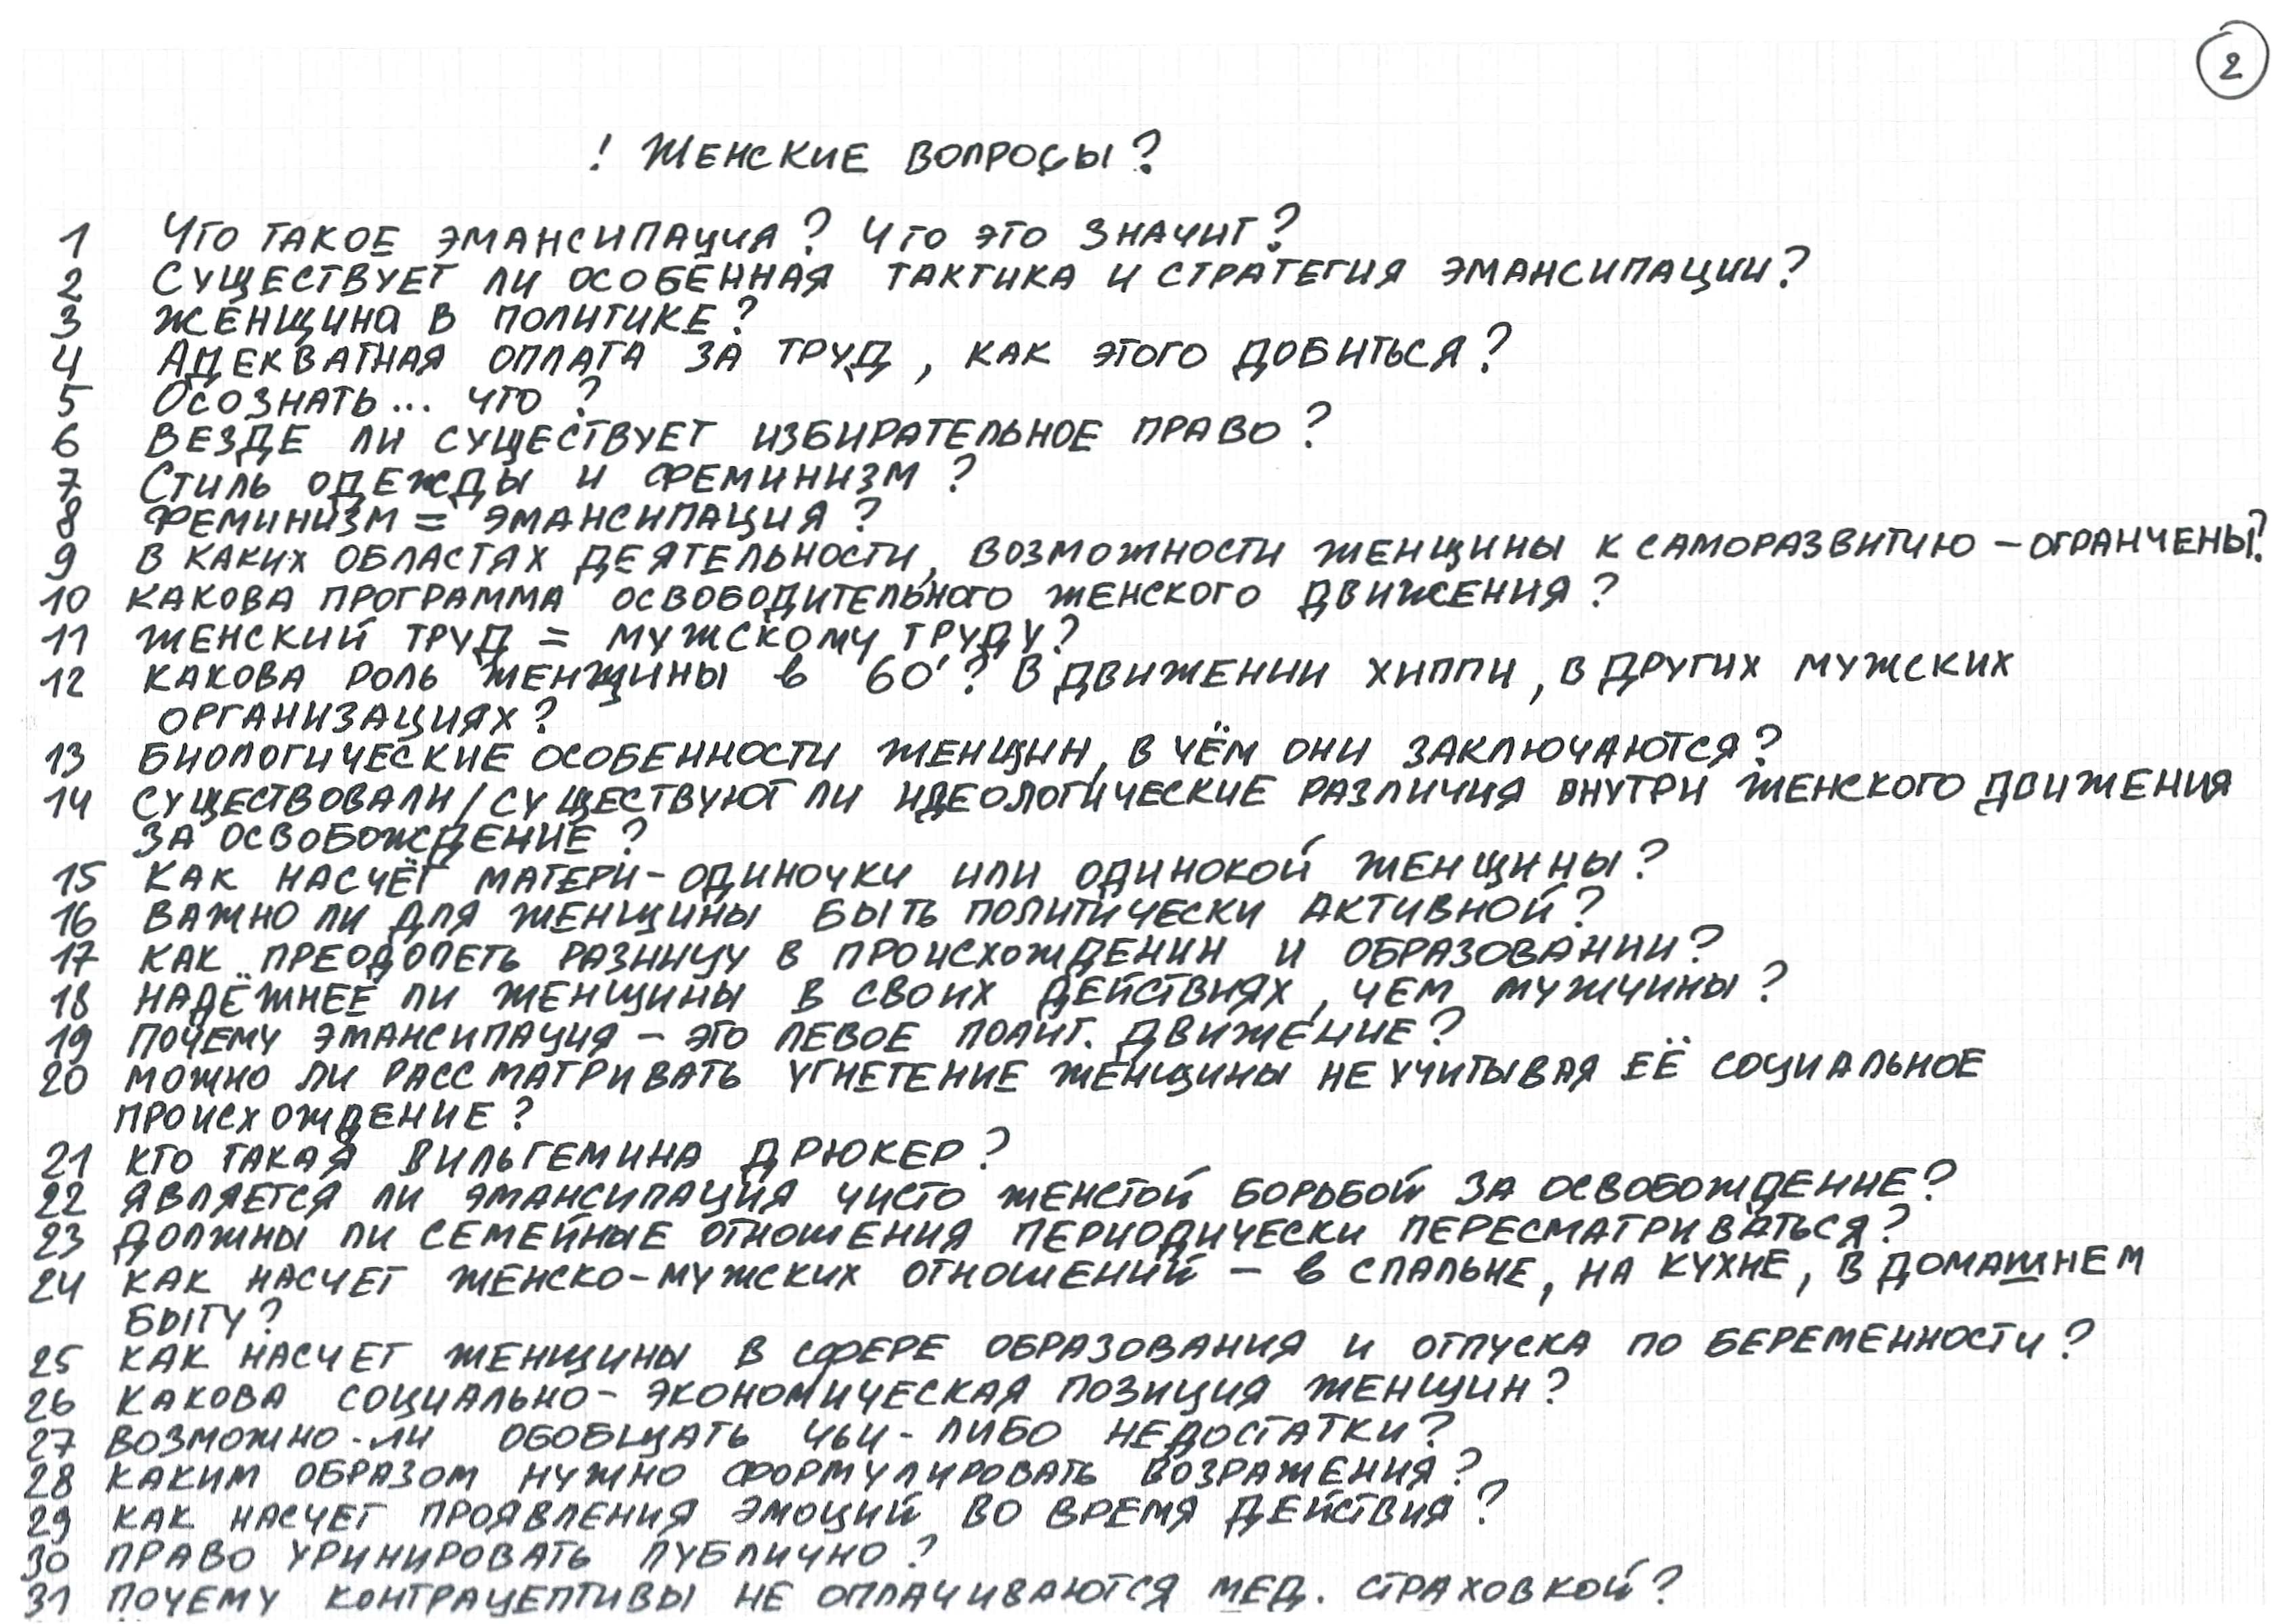 2
! Женские вопросы?
1 Что такое эмансипация? Что это значит?
2 Существует ли особенная тактика и стратегия эмансипации?
3 Женщина в политике?
4 Адекватная оплата за труд, как этого добиться?
5 Осознать... что?
6 Везде ли существует избирательное право?
7 Стиль одежды и феминизм?
8 Феминизм = эмансипация?
9 В каких областях деятельности, возможности женщины к саморазвитию – огранчены?
10 Какова программа освободительного женского движения?
11 Женский труд = мужскому труду?
12 Какова роль женщины в 60'? В движении хиппи, в других мужских
организациях?
13 Биологические особенности женщин, в чём они заключаются?
14 Существовали/существуют ли идеологические различия внутри женского движения
за освобождение?
15 Как насчёт матери-одиночки или одинокой женщины?
16 Важно ли для женщины быть политически активной?
17 Как преодолеть разницу в происхождении и образовании?
18 Надёжнее ли женщины в своих действиях, чем мужчины?
19 Почему эмансипация – это левое полит. движение?
20 Можно ли рассматривать угнетение женщины не учитывая её социальное
происхождение?
21 Кто такая Вильгемина Дрюкер?
22 Является ли эмансипация чисто женстой борьбой за освобождение?
23 Должны ли семейные отношения периодически пересматриваться?
24 Как насчет женско-мужских отношений – в спальне, на кухне, в домашнем
быту?
25 Как насчет женщины в сфере образования и отпуска по беременности?
26 Какова социально-экономическая позиция женщин?
27 Возможно-ли обобщать чьи-либо недостатки?
28 Каким образом нужно формулировать возражения?
29 Как насчет проявления эмоций во время действия?
30 Право уринировать публично?
31 Почему контрацептивы не оплачиваются мед. страховкой?